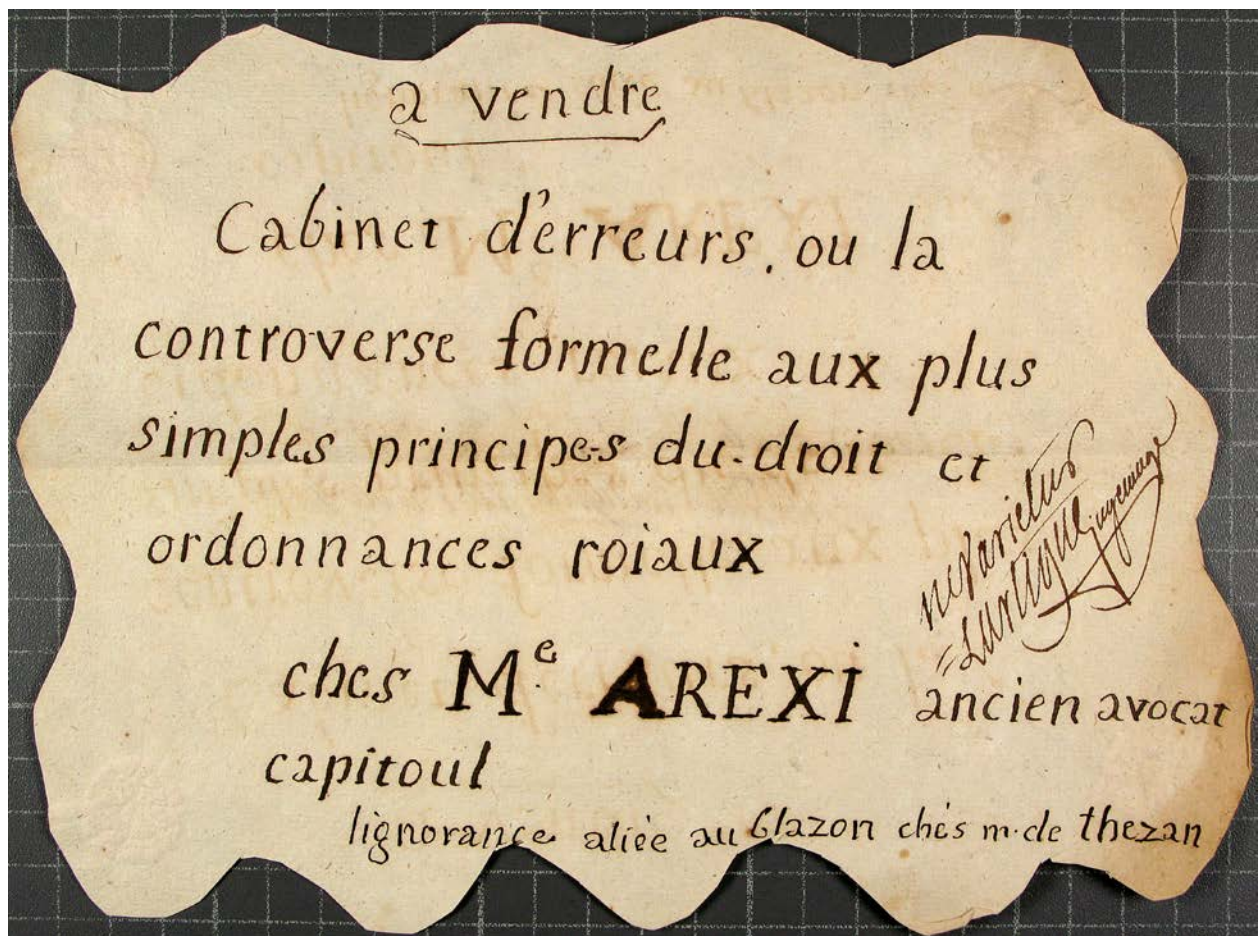 a vendre
Cabinet d'erreurs, ou la
controverse formelle aux plus
simples principes du droit et
ordonnances roiaux
ne varietur
Lartigue juge mage
ches Me. AREXI ancien avocat
capitoul
lignorance aliée au blazon chés m. de thezan